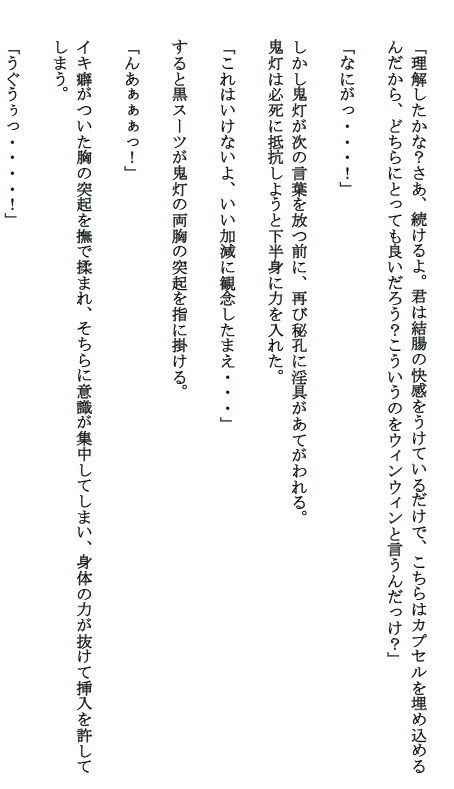 「理解したかな？さあ、続けるよ。君は結腸の快感をうけているだけで、こちらはカプセルを埋め込める
んだから、どちらにとっても良いだろう？こういうのをウィンウィンと言うんだっけ？」
「なにがっ・・・！」
しかし鬼灯が次の言葉を放つ前に、再び秘孔に淫具があてがわれる。
鬼灯は必死に抵抗しようと下半身に力を入れた。
「これはいけないよ、いい加減に観念したまえ・・・」
すると黒スーツが鬼灯の両胸の突起を指に掛ける。
「んあぁぁぁっ！」
イキ癖がついた胸の突起を撫で揉まれ、そちらに意識が集中してしまい、身体の力が抜けて挿入を許して
しまう。
「うぐうぅっ・・・・！」